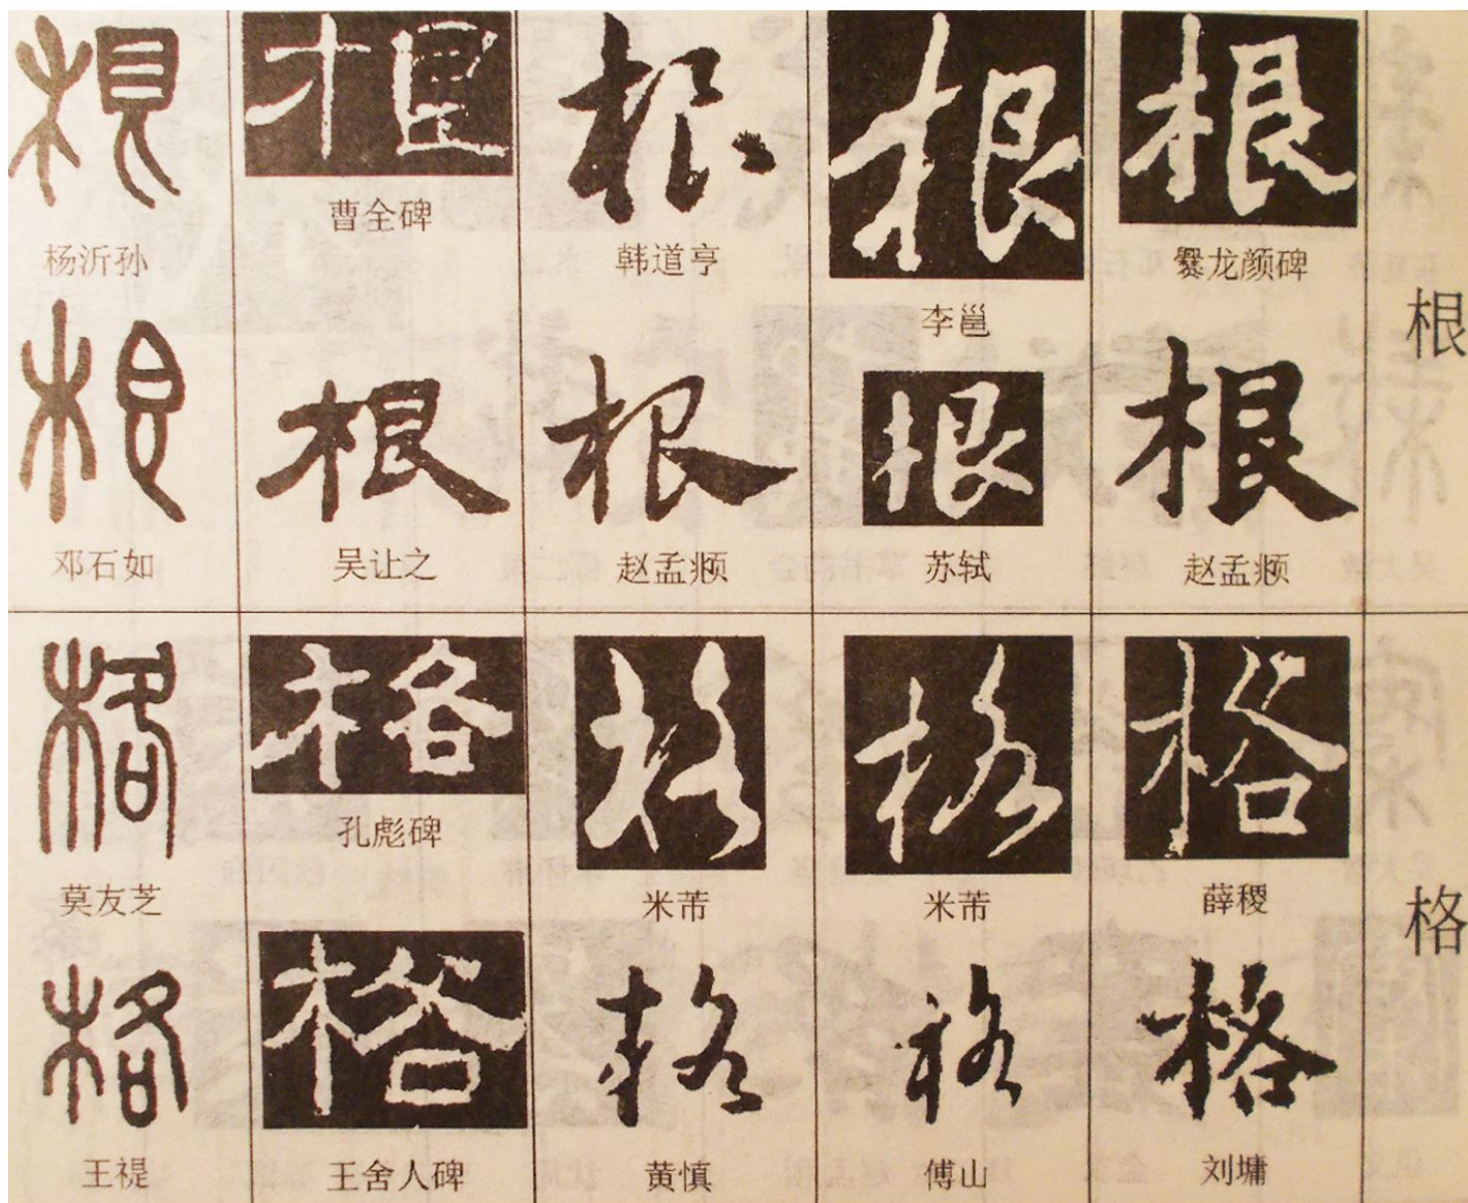 根 根 根 根 根
杨沂孙 曹全碑 韩道亨 李邕 爨龙颜碑
根
根 根 根 根 根
邓石如 吴让之 赵孟頫 苏轼 赵孟頫
格 格 格 格 格
莫友芝 孔彪碑 米芾 米芾 薛稷
格
格 格 格 格 格
王禔 王舍人碑 黄慎 傅山 刘墉